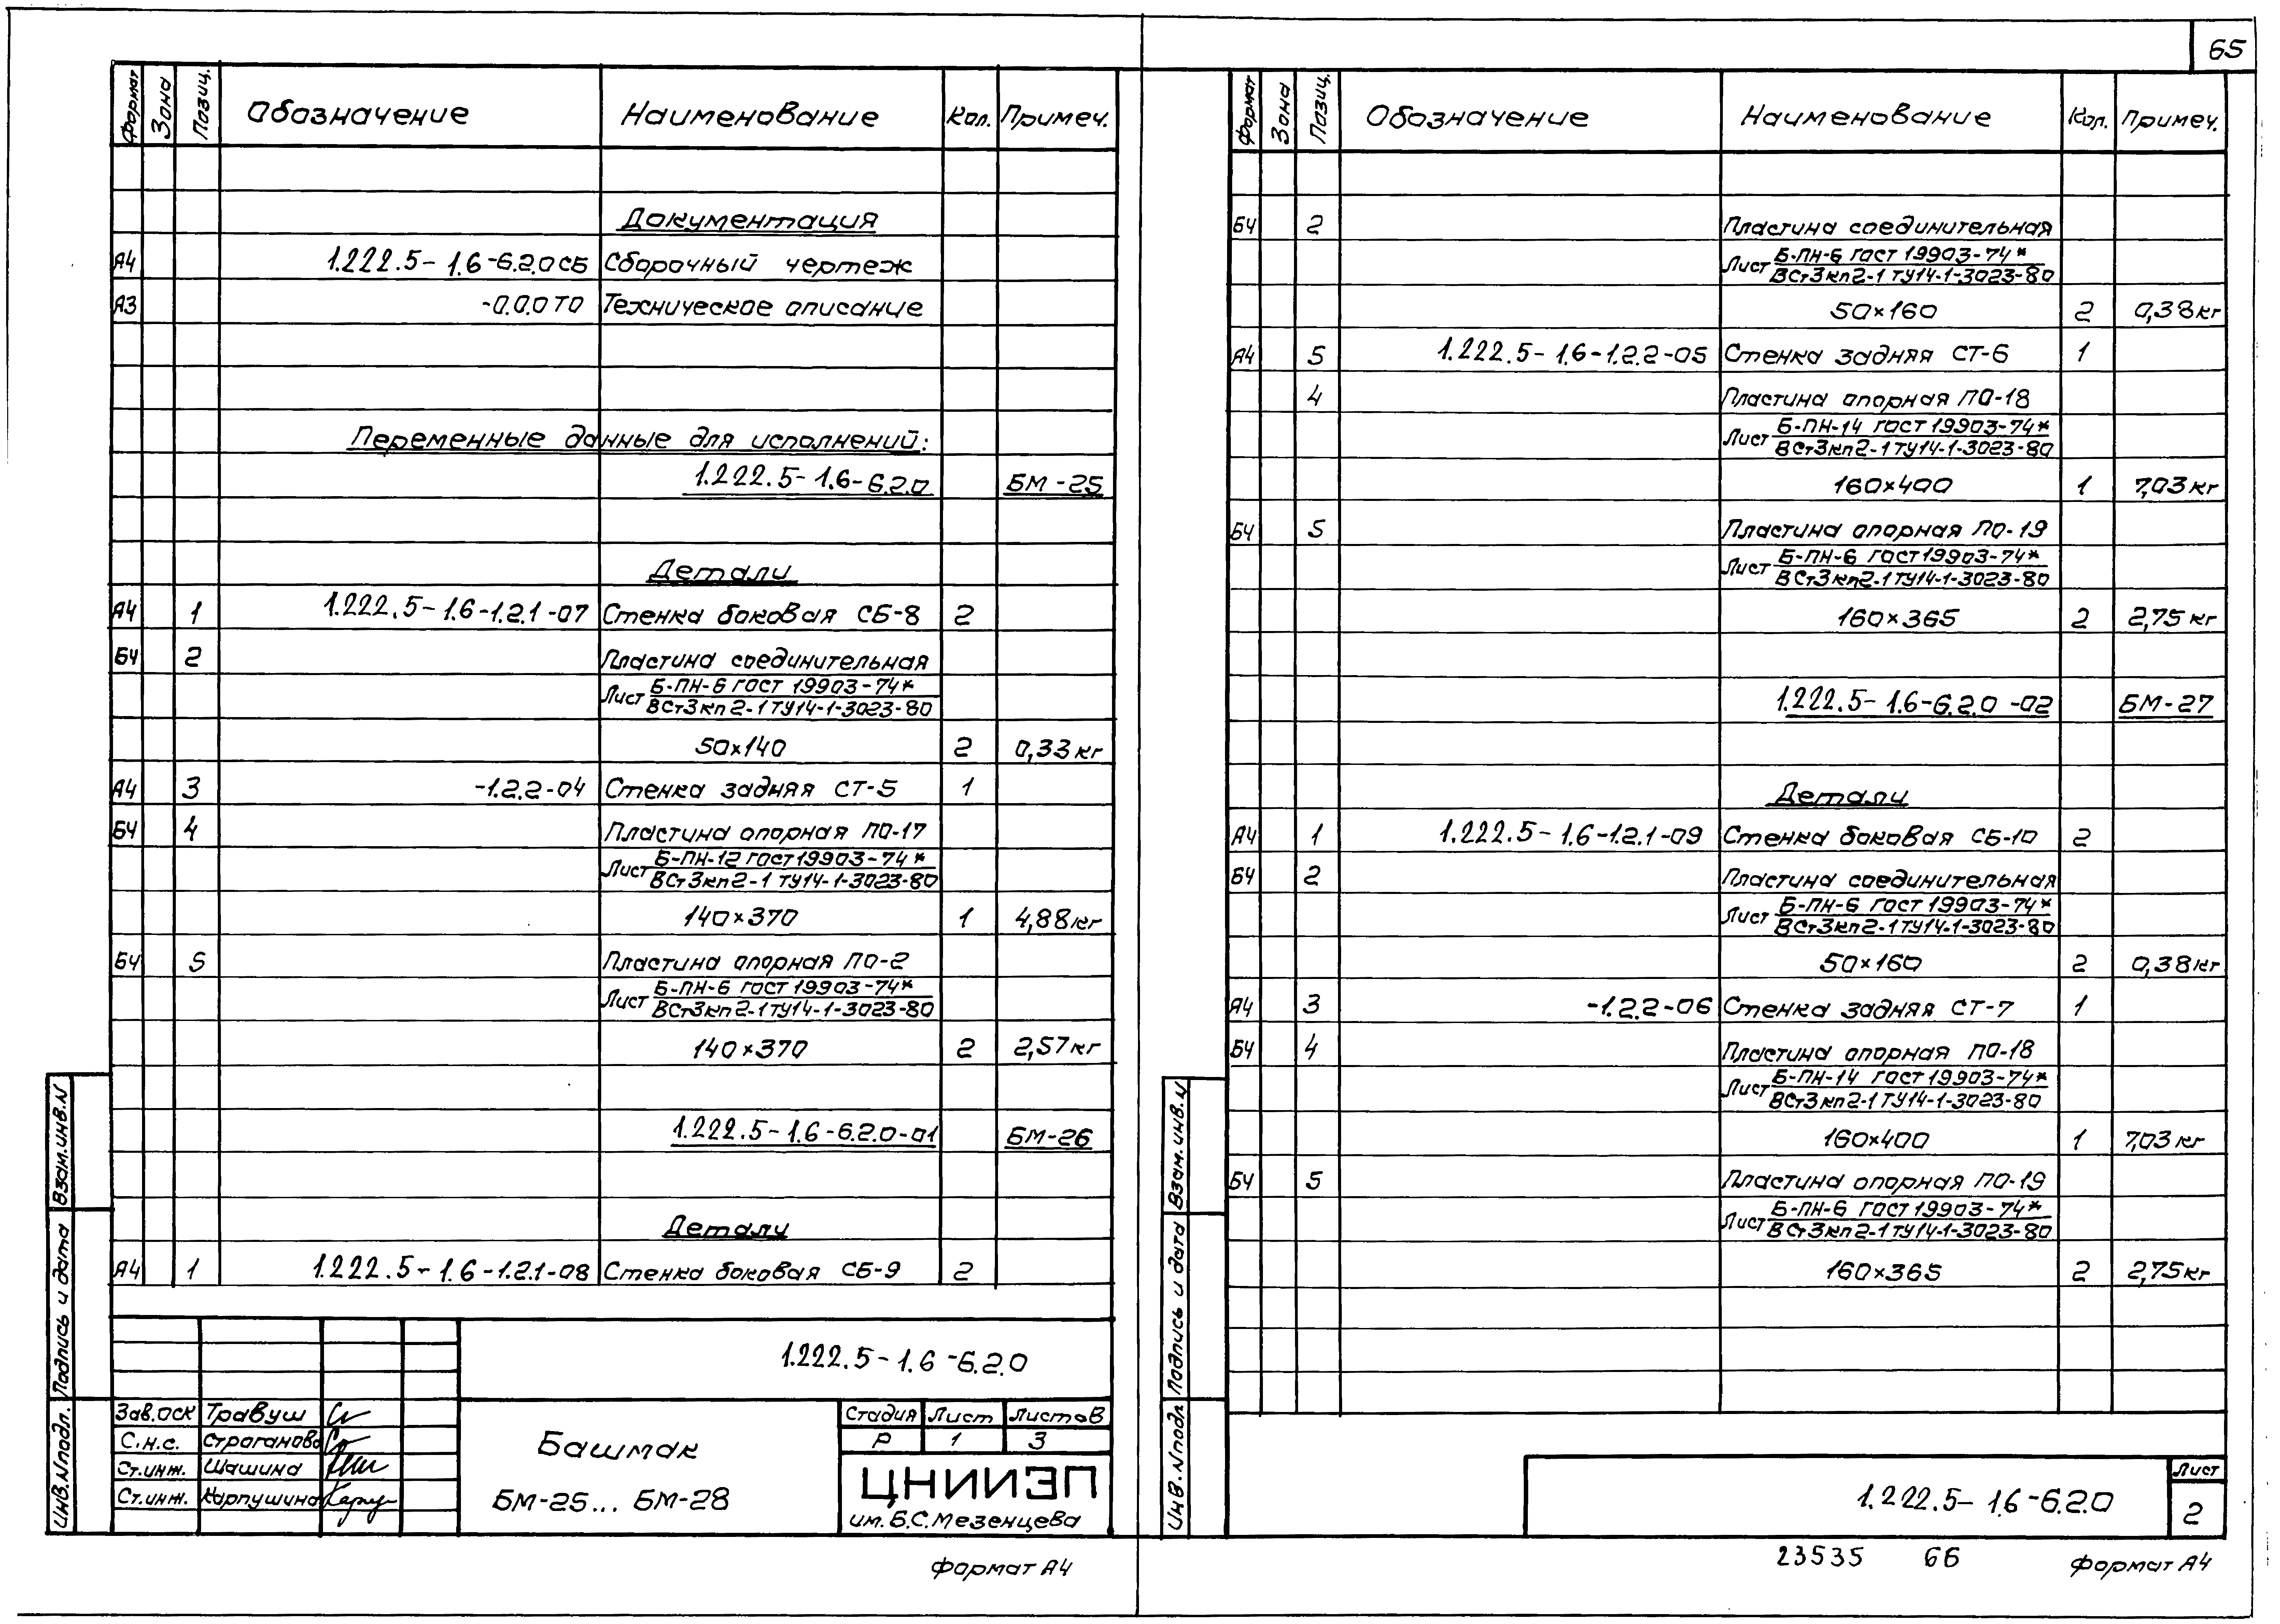 65
Формат Зона Позиц. Обозначение Наименование Кол. Примеч.
Документация
А4 1.222.5-1.6-6.2.0СБ Сборочный чертеж
А3 -0.0.0ТО Техническое описание
Переменные данные для исполнений:
1.222.5-1.6-6.2.0 БМ-25
Детали
А4 1 1.222.5-1.6-1.2.1-07 Стенка боковая СБ-8 2
БЧ 2 Пластина соединительная
Лист Б-ПН-6 ГОСТ 19903-74*
ВСт3кп2-1 ТУ14-1-3023-80
50×140 2 0,33кг
А4 3 -1.2.2-04 Стенка задняя СТ-5 1
БЧ 4 Пластина опорная ПО-17
Лист Б-ПН-12 ГОСТ 19903-74*
ВСт3кп2-1 ТУ14-1-3023-80
140×370 1 4,88кг
БЧ 5 Пластина опорная ПО-2
Лист Б-ПН-6 ГОСТ 19903-74*
ВСт3кп2-1 ТУ14-1-3023-80
140×370 2 2,57кг
1.222.5-1.6-6.2.0-01 БМ-26
Детали
А4 1 1.222.5-1.6-1.2.1-08 Стенка боковая СБ-9 2
1.222.5-1.6-6.2.0
Зав.ОСК Травуш
С.н.с. Строганова
Ст.инж. Шашина
Ст.инж. Карпушина
Башмак
БМ-25... БМ-28
Стадия Лист Листов
Р 1 3
ЦНИИЭП
им. Б.С. Мезенцева
Инв.N подл. Подпись и дата Взам.инв.N
Формат А4
Формат Зона Позиц. Обозначение Наименование Кол. Примеч.
БЧ 2 Пластина соединительная
Лист Б-ПН-6 ГОСТ 19903-74*
ВСт3кп2-1 ТУ14-1-3023-80
50×160 2 0,38кг
А4 5 1.222.5-1.6-1.2.2-05 Стенка задняя СТ-6 1
4 Пластина опорная ПО-18
Лист Б-ПН-14 ГОСТ 19903-74*
ВСт3кп2-1 ТУ14-1-3023-80
160×400 1 7,03кг
БЧ 5 Пластина опорная ПО-19
Лист Б-ПН-6 ГОСТ 19903-74*
ВСт3кп2-1 ТУ14-1-3023-80
160×365 2 2,75кг
1.222.5-1.6-6.2.0-02 БМ-27
Детали
А4 1 1.222.5-1.6-1.2.1-09 Стенка боковая СБ-10 2
БЧ 2 Пластина соединительная
Лист Б-ПН-6 ГОСТ 19903-74*
ВСт3кп2-1 ТУ14-1-3023-80
50×160 2 0,38кг
А4 3 -1.2.2-06 Стенка задняя СТ-7 1
БЧ 4 Пластина опорная ПО-18
Лист Б-ПН-14 ГОСТ 19903-74*
ВСт3кп2-1 ТУ14-1-3023-80
160×400 1 7,03кг
БЧ 5 Пластина опорная ПО-19
Лист Б-ПН-6 ГОСТ 19903-74*
ВСт3кп2-1 ТУ14-1-3023-80
160×365 2 2,75кг
Инв.N подл Подпись и дата Взам.инв.N
1.222.5-1.6-6.2.0
Лист
2
23535 66
Формат А4